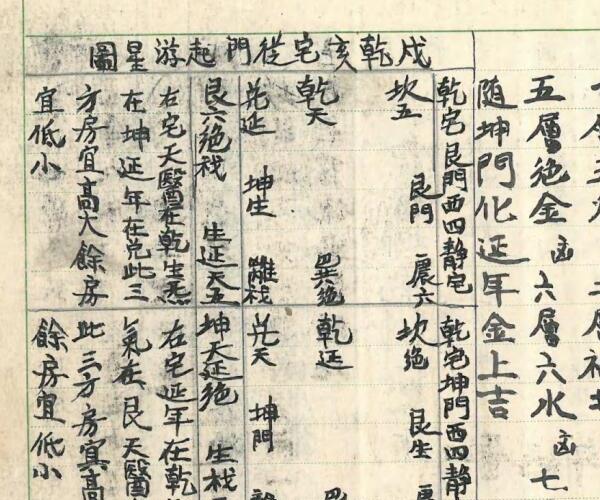 七
五層绝金 凶 六層六水 凶 七
随坤門化延年金上吉
戌乾亥宅從門起游星圖
乾宅艮門西四静宅
坎五 艮門 震六
乾天 巽绝
兑延 坤生 離栈
艮六绝栈 生延天五
右宅天醫在乾生炁
在坤延年在兑此三
方房宜高大餘房
宜低小
乾宅坤門西四静
坎绝 艮生
乾延
兑天 坤門
坤天延绝 生栈
右宅延年在乾
氣在艮天醫
此三方房宜高
餘房宜低小